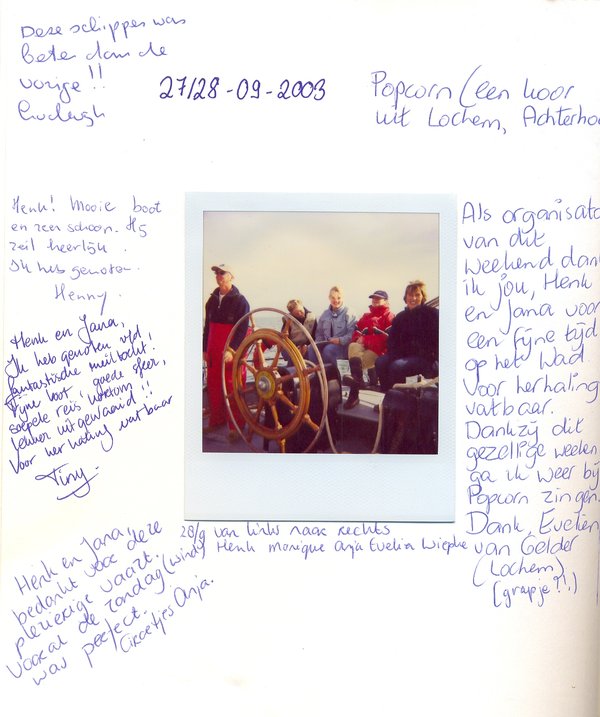 Deze schipper was
beter dan de
vorige!!
27/28-09-2003
Popcorn (een koor
uit Lochem, Achterhoe
Henk! Mooie boot
en zeer schoon. Hij
zeil heerlijk.
Ik heb genoten.
Henny.
Henk en Jana,
Ik heb genoten v/d
fantastische zeiltocht!
Fijne boot, goede sfeer,
soepele reis, kortom,
lekker uitgewaaid!!
Voor herhaling vatbaar
Tiny.
Henk en Jana,
bedankt voor deze
plezierige vaart.
Vooral de zondag (wind)
was perfect.
Groetjes Anja.
28/9 van links naar rechts
Henk Monique Anja Evelien Wiepke
Als organisato
van dit
weekend dank
ik jou, Henk
en Jana voor
een fijne tijd
op het Wad.
Voor herhaling
vatbaar.
Dankzij dit
gezellige weeken
ga ik weer bij
Popcorn zingen.
Dank, Evelien
van Gelder
(Lochem)
(grapje?!.)